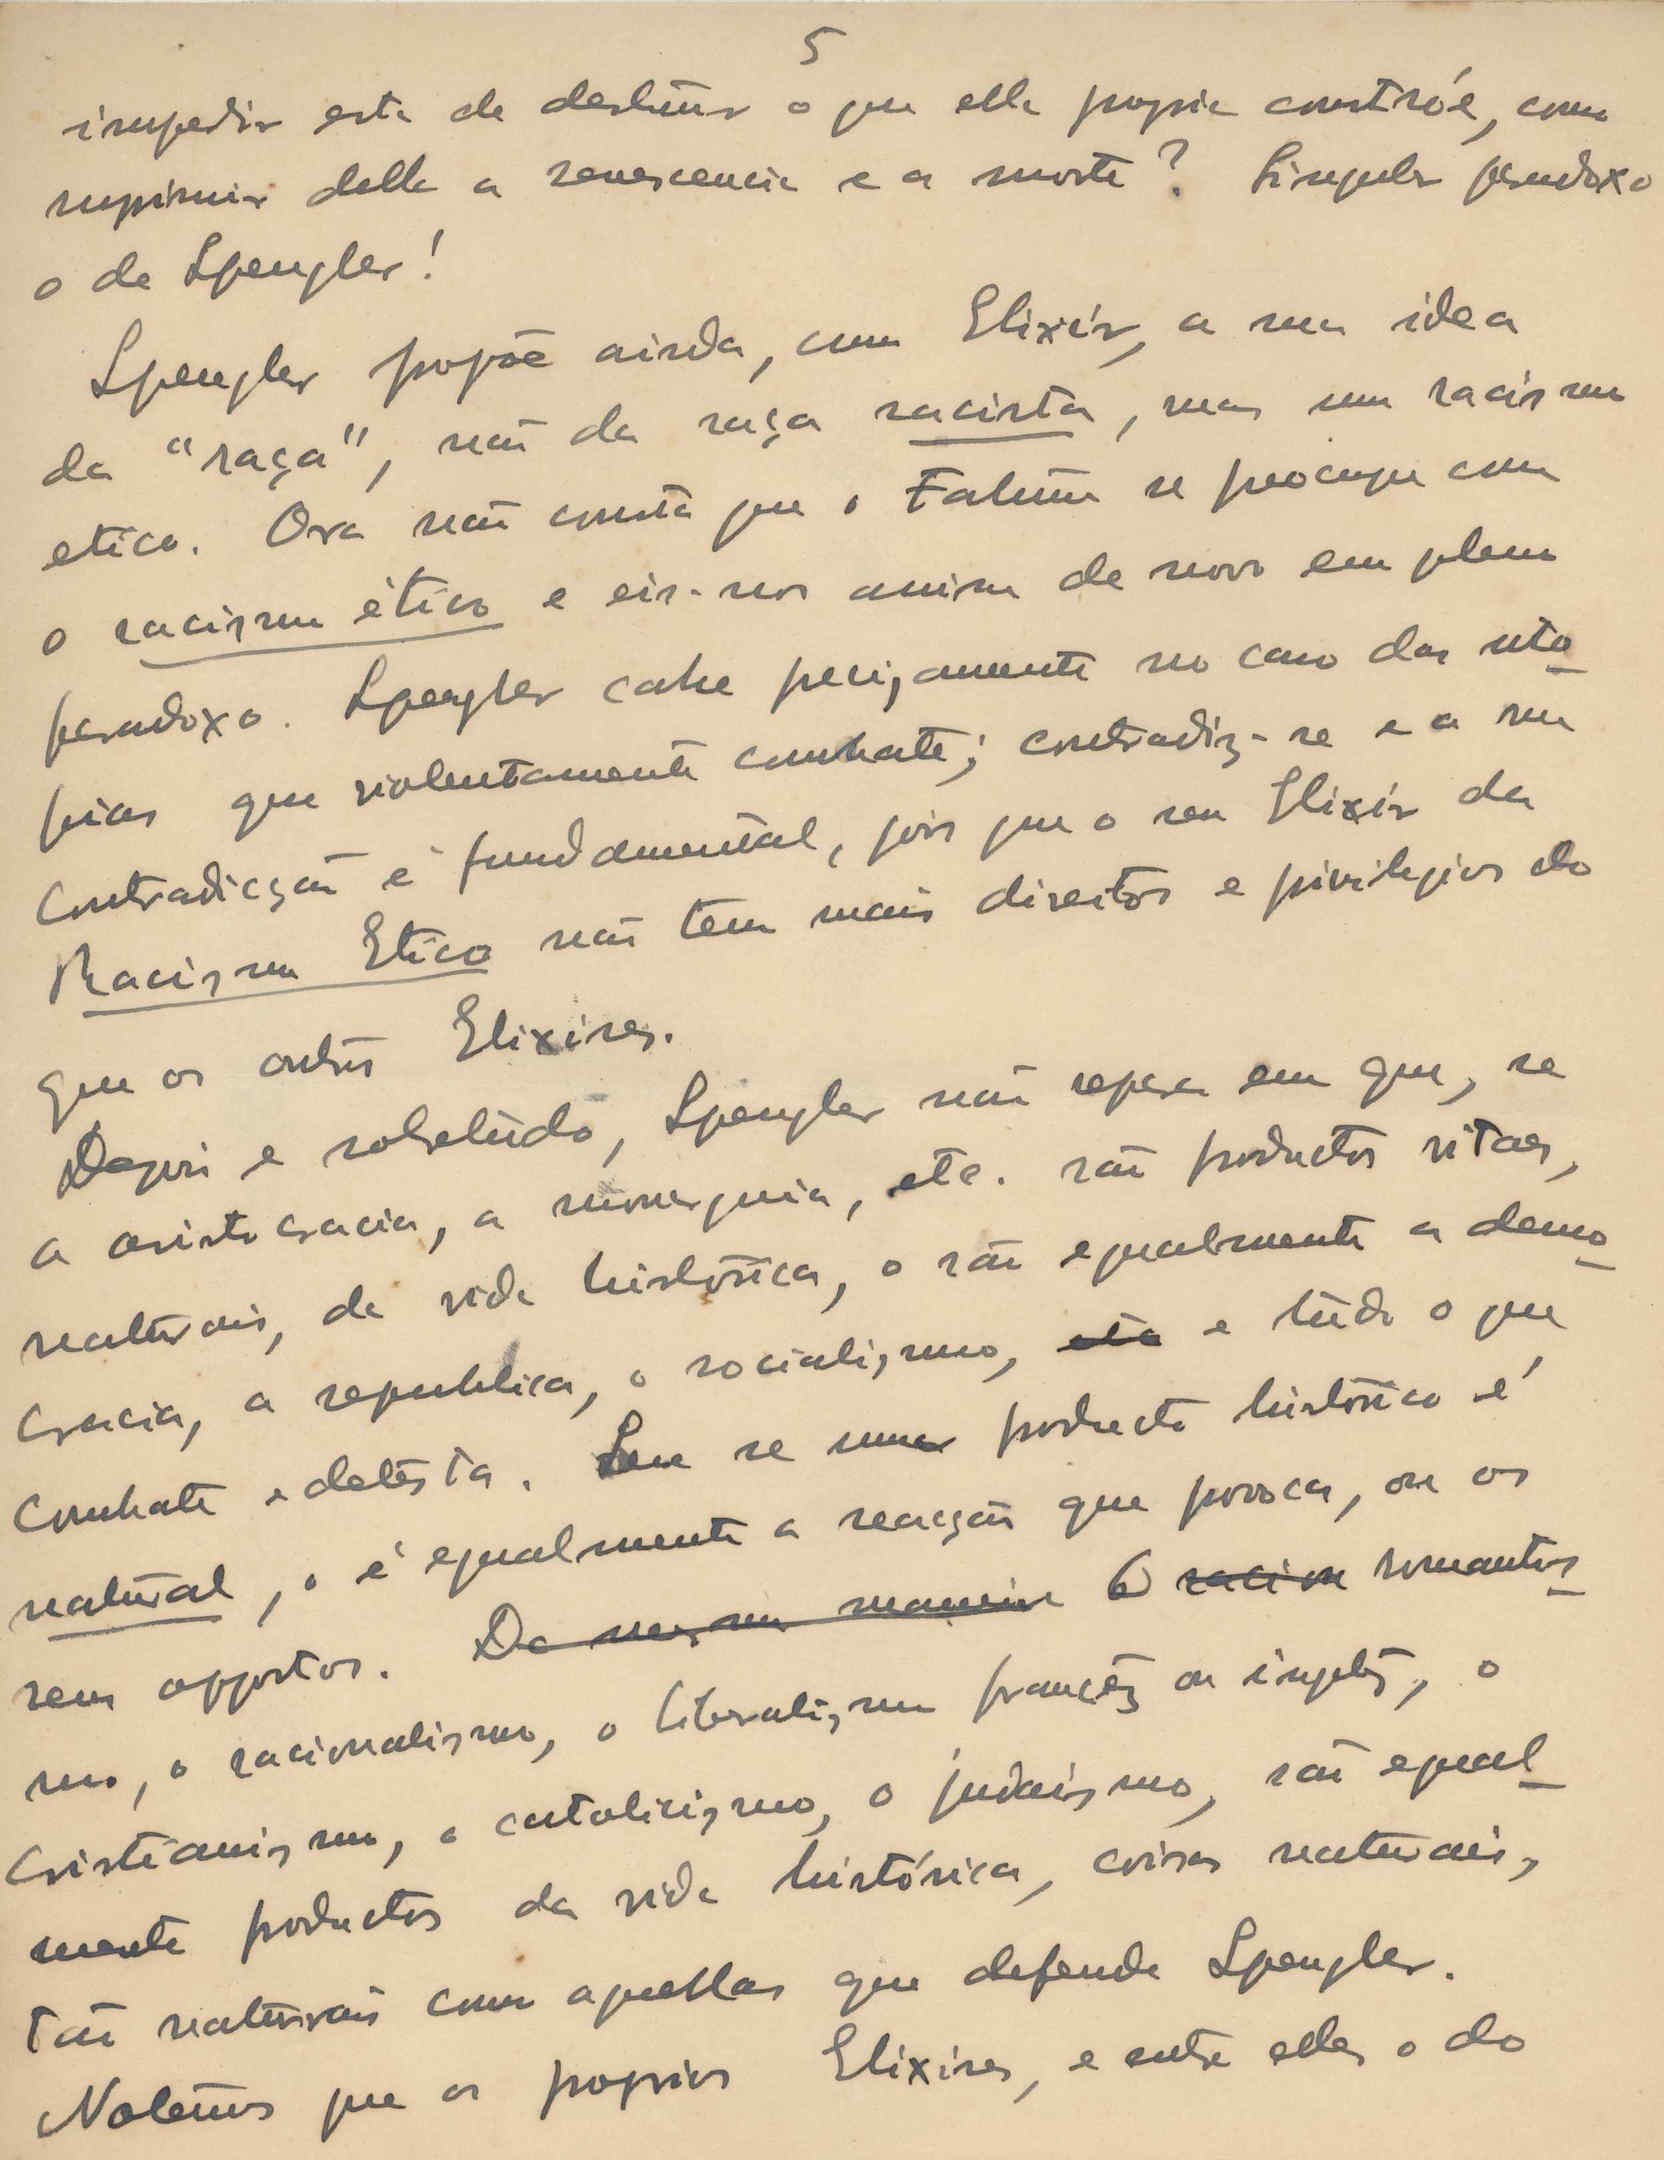 5
impedir esta de destruir o que ella propria constróe, como
suprimir della a senescencia e a morte? Singular paradoxo
o de Spengler!
Spengler propõe ainda, como Elixir, a sua idea
da "raça", não da raça racista, mas um racismo
etico. Ora não consta que o Fatum se preocupe com
o racismo ético e eis-nos assim de novo em pleno
paradoxo. Spengler cahe precisamente no caso das uto-
pias que violentamente combate; contradiz-se e a sua
contradicção é fundamental, pois que o seu Elixir da
Racismo Etico não tem mais direitos e privilegios do
que os outros Elixires.
Depois e sobretudo, Spengler não repara em que, se
a aristocracia, a monarquia, etc. são productos vitaes,
naturais, da vida histórica, o são egualmente a demo-
cracia, a republica, o socialismo, etc e tudo o que
combate e detesta. Se num producto histórico é
natural, o é egualmente a reacção que provoca, ou os
seus oppostos. Da mesma maneira O racion romantis-
mo, o racionalismo, o liberalismo francês ou inglês, o
cristianismo, o catolicismo, o judaismo, são egual-
mente productos da vida histórica, coisas naturais,
tão naturais como aquellas que defende Spengler.
Notemos que os proprios Elixires, e entre elles o do